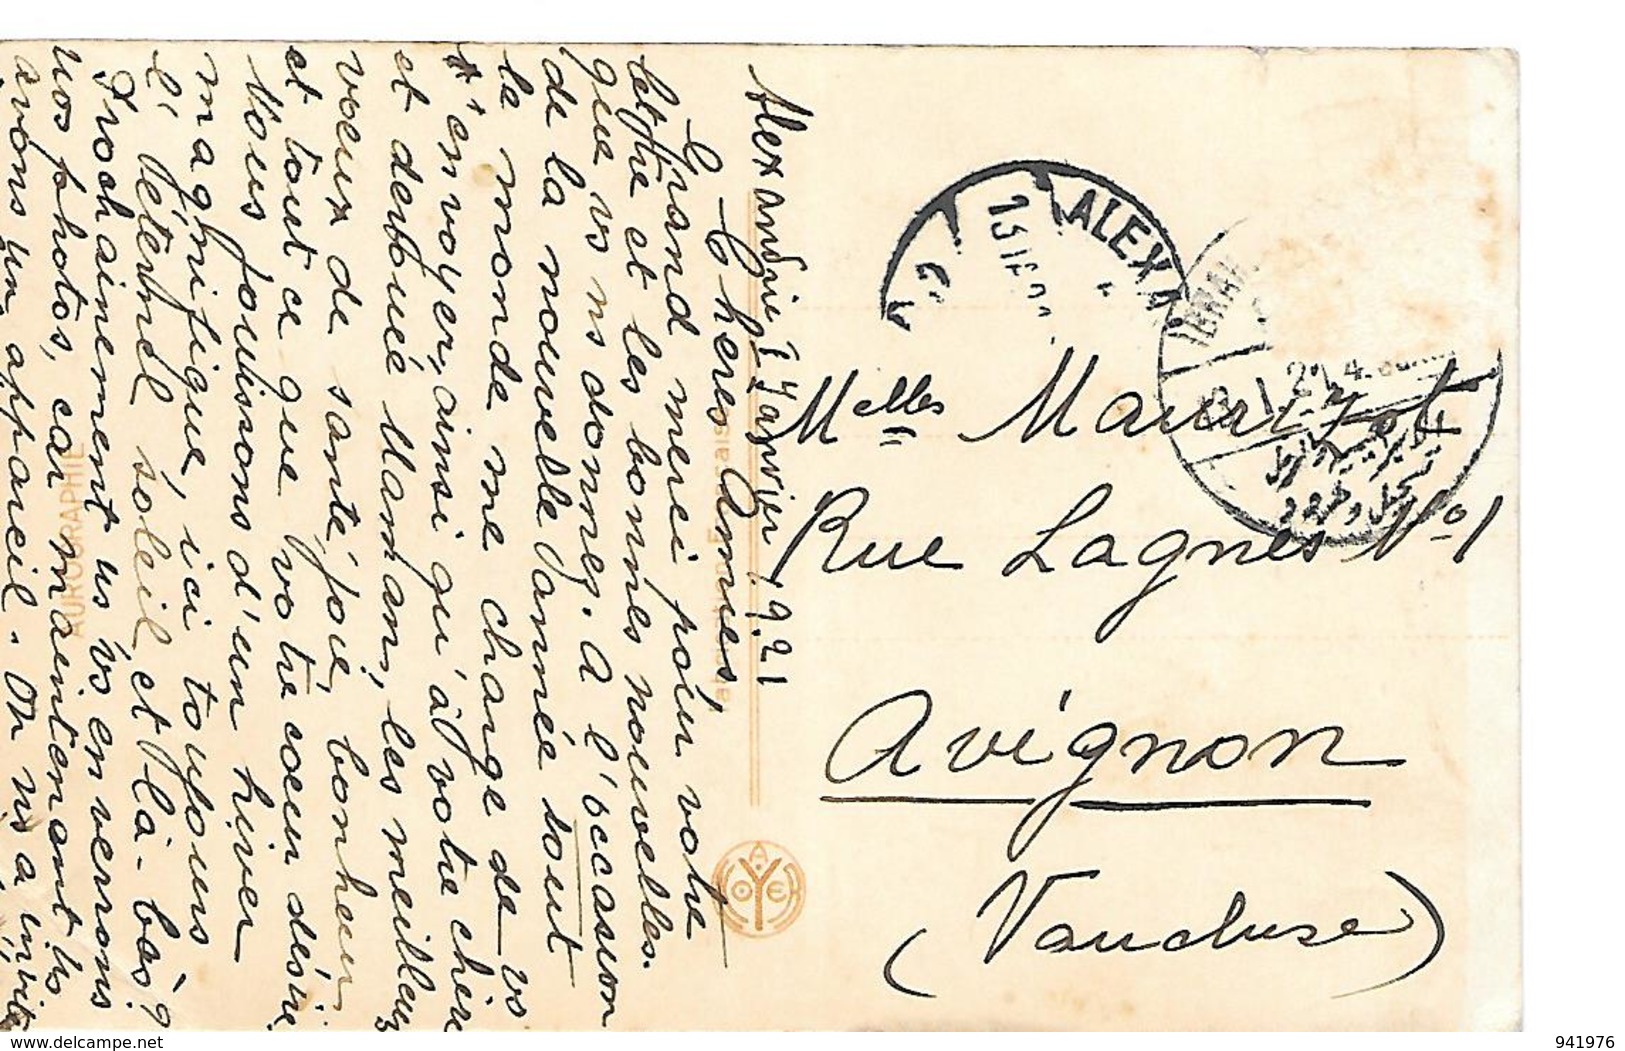 Alexandrie 7 Janvier 1921
Chères Amies,
Grand merci pour votre
lettre et les bonnes nouvelles.
que vs ns donnez. A l'occasion
de la nouvelle année tout
le monde me charge de vs
envoyer, ainsi qu'à votre chère
et dévouée Maman, les meilleurs
voeux de santé, joie, bonheur
et tout ce que votre coeur désire.
Nous jouissons d'un hiver
magnifique, ici toujours
l'éternel soleil et là-bas?
Prochainement ns vs enverrons
nos photos, car maintenant ns
avons un appareil. On ns a invité
AUROGRAPHIE
AYOE
ALEXA
Melles Maurizot
Rue Lagnes No 1
Avignon
(Vaucluse)
delcampe.net
941976